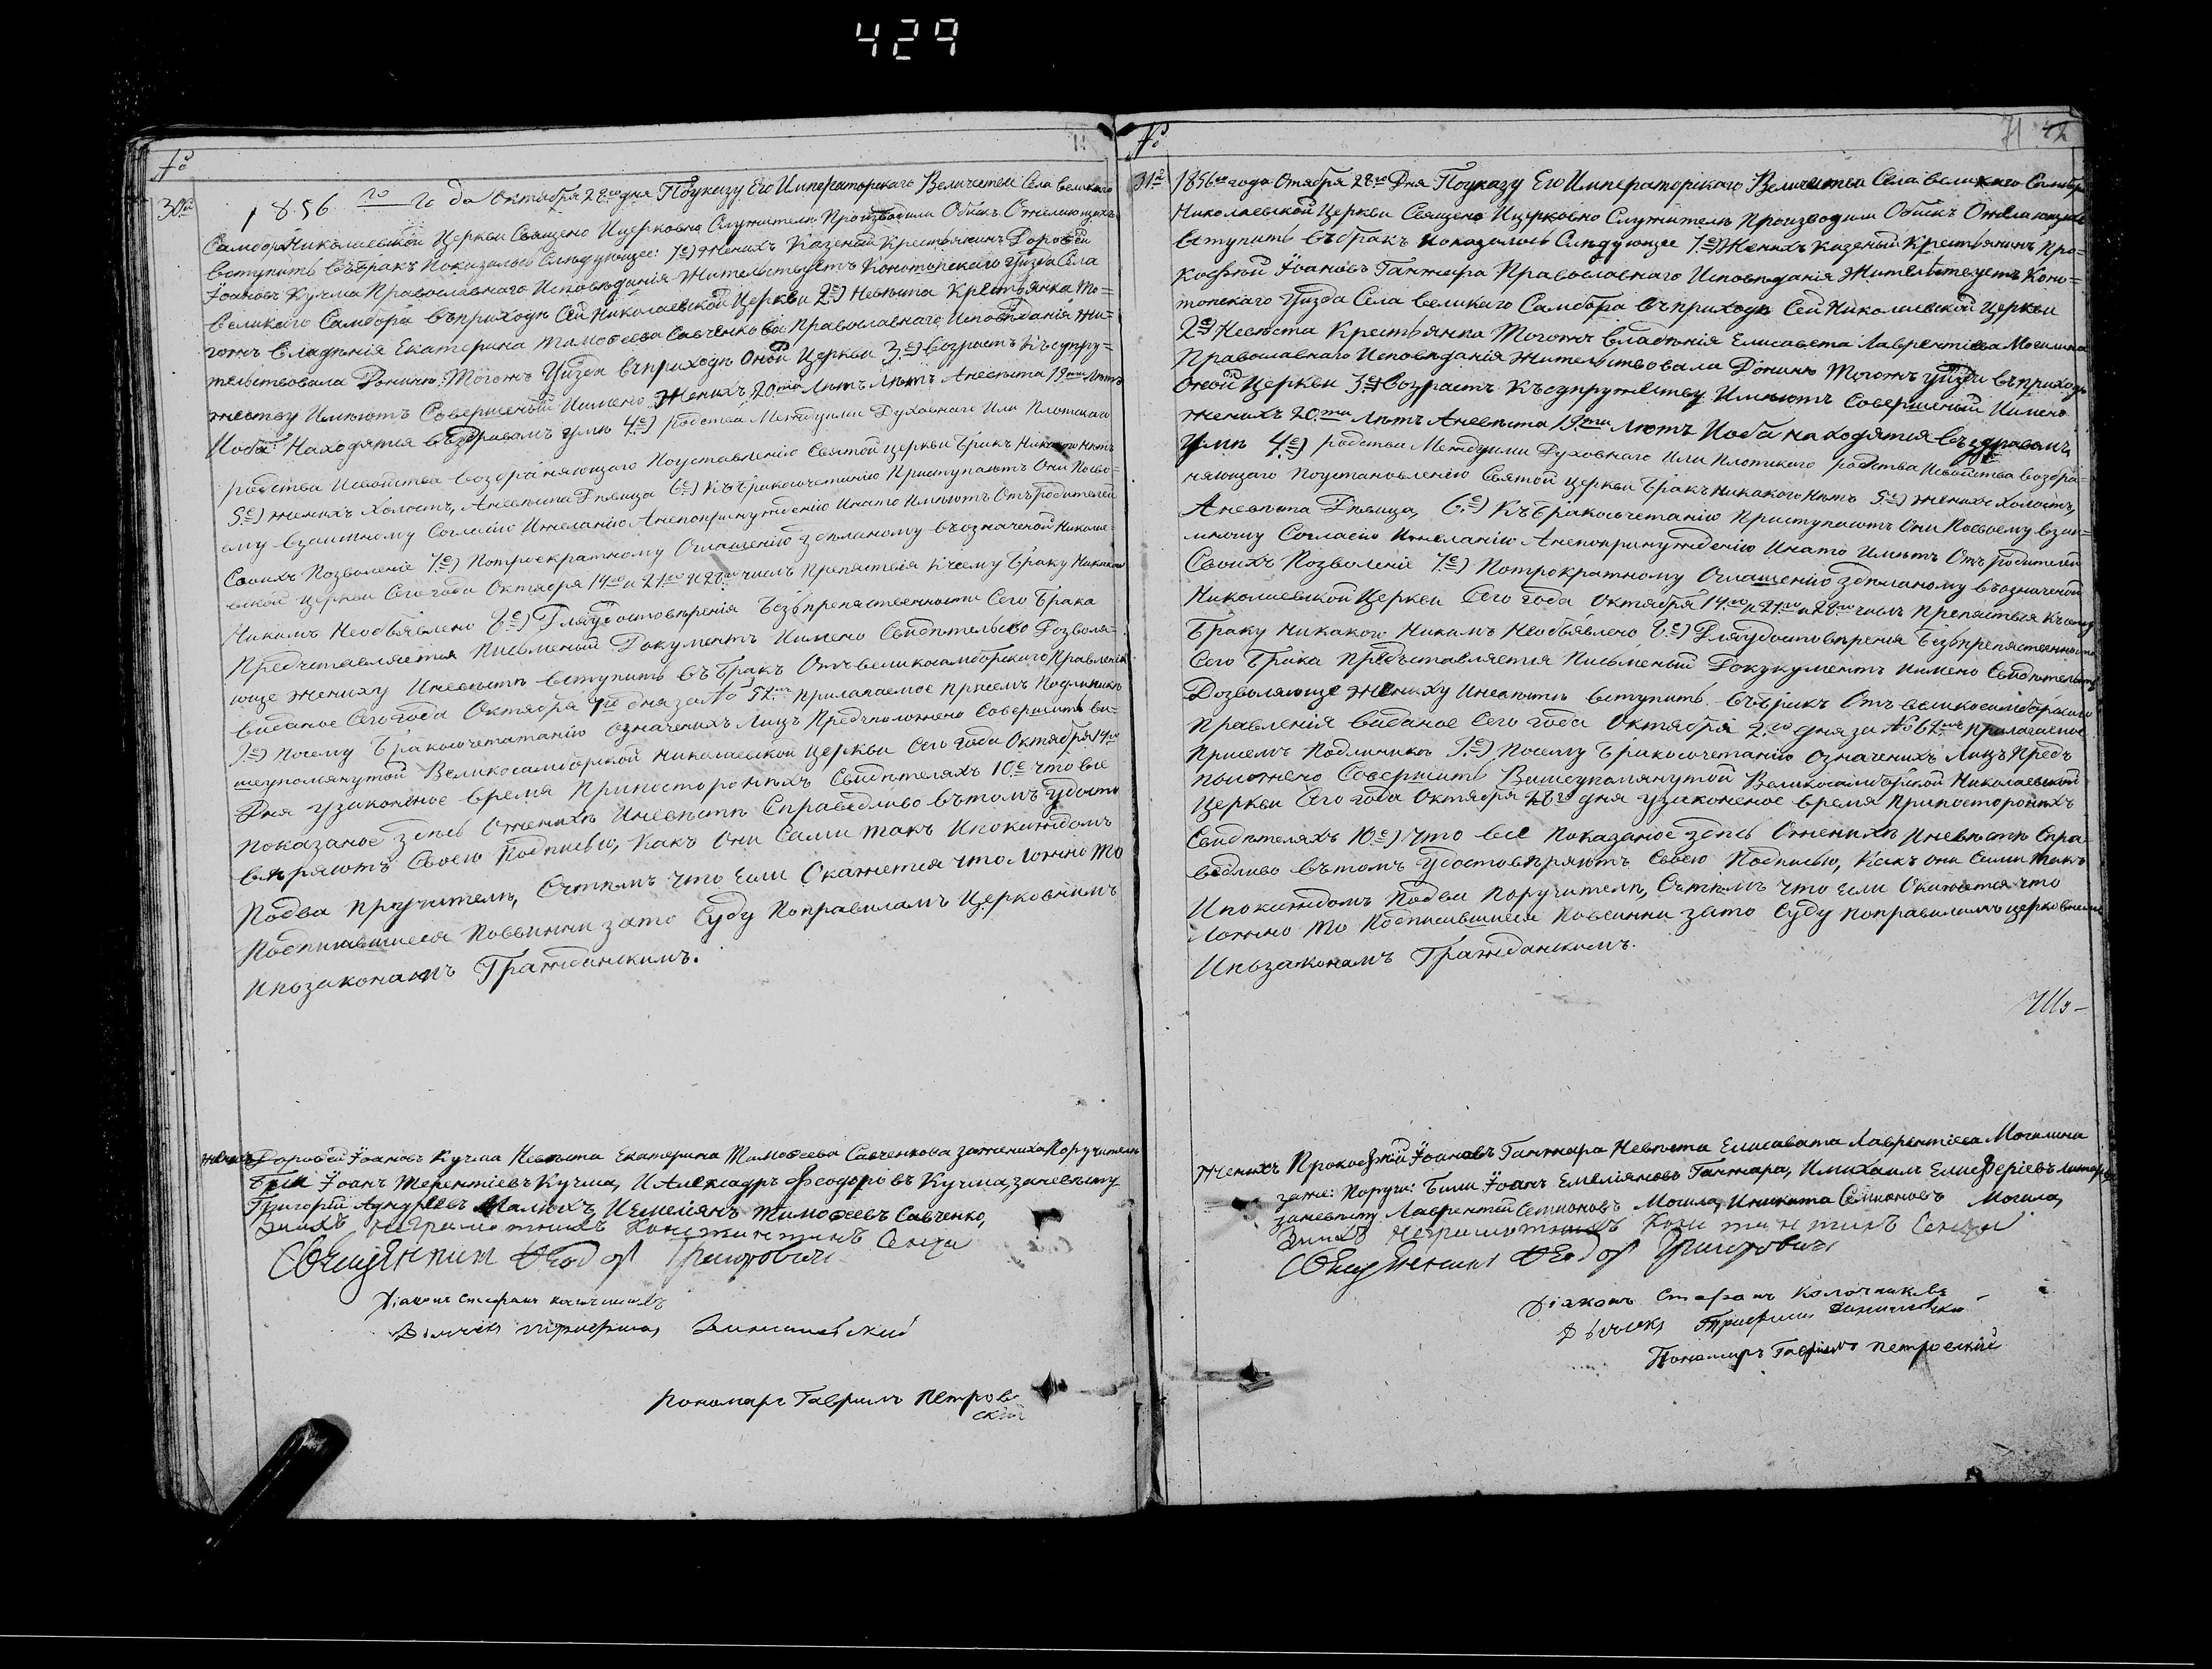 429
№
30й
1856 го года Октября 28го дня Поуказу Его Императорскаго Величества Села великаго
Самбора Николаевской Церкви Священо Ицерковно Служители Производили Обиск Ожелающихъ
вступить въбракъ Показалось Слѣдующее: 1е) Женихъ Казеный Крестьянинъ Дорофей
Іоановъ Кучма Православнаго Исповѣданія Жительствуетъ Конотопскаго Уѣзда Села
великаго Самбора въприходѣ Сей Николаевской Церкви 2е) Невѣста Крестьянка То=
гожъ владѣнія Екатерина Тимофеева Савченкова Православнаго Исповѣданія Жи-
тельствовала Донинѣ: Тогожъ Уѣзда въприходѣ Оной Церкви 3е) возрастъ Къ супру-
жеству Имѣютъ Совершеный Иимено Женихъ 20ти Лѣтъ Лѣтъ Аневѣста 19ти Лѣтъ
Иоба: Находятся въздравомъ умѣ 4е) родства Междуими Духовнаго Или Плотскаго
родства Исвойства возбраняющаго Поуставленію Святой церкви бракъ Никакого Нѣтъ
5е) женихъ Холостъ, Аневѣста Дѣвица 6е) Къбракосочетанію Приступаютъ Они Посво-
ему взаимному Согласію Ижеланію Анепопринужденію Инато Имѣютъ Отъ родителей
Своихъ Позволеніе 7е) Потроекратному Оглашенію здѣланому въозначеной Николае-
вской церкви Сего года Октября 14го и 21го и 28го числъ Препятствія Ксему браку Никакого
Никимъ Необъявлено 8е) Дляудостовѣренія безъпрепятственности Сего брака
Предъставляется Письменый Документъ Иимено Свидѣтельство Дозволя-
юще жениху Иневѣстѣ вступить въбракъ Отъ великосамборскаго Правленія
виданое Сего года Октября дня за № прилагаемое присемъ Подлиникъ
9е) Посему бракосочетатанію означенихъ Лицъ Предъположено Совершить ви-
шеупомянутой Великосамборской Николаевской церкви Сего года Октября
Дня узаконеное время Припостороныхъ Свидѣтеляхъ 10е что все
показаное здѣсь Оженихѣ Иневѣстѣ Справедливо вътомъ удосто
вѣряютъ Своею Подписью, Какъ Они Сами такъ Ипокаждомъ
Подва пручителѣ, Стѣмъ что Если Окажется что Ложно то
Подписавшиеся Повинни зато Суду Поправиламъ Церковнимъ
Ипозаконамъ Гражданскимъ.
Женихъ Дорофей Іоановъ Кучма Невѣста Екатерина Тимофеева Савченкова зажениха Поручители
били Іоанъ Терентіевъ Кучма, ИАлександръ Феодоровъ Кучма, заневѣсту
Григорій Андреевъ Малихъ, Иемеліянъ Тимофеевъ Савченко,
Знихъ Неграмотнихъ Константинъ
Священникъ Феодоръ Григоровичъ
Діаконъ Стефанъ
Дьячекъ Трофимъ
Пономаръ Гавриилъ Петров-
скій
№
71 42
31й
1856го года Отября 28го Дня Поуказу Его Императорскаго Величества Села великаго Самбора
Николаевской Церкви Священо Ицерковно Служители Производили Обискъ Ожелающихъ
вступить въбракъ Показалось Слѣдующее 1е) Женихъ Казеный Крестьянинъ Про-
кофий Іоановъ Ганжара Православнаго Исповѣданія Жительствуетъ Коно=
топскаго Уѣзда Села великаго Самбора въприходѣ Сей Николаевской Церкви
2е) Невѣста Крестьянка Тогожъ владѣнія Елисавета Лаврентіева Могилина
Православнаго Исповѣданія Жительствовала Донинѣ Тогожъ Уѣзда въприходѣ
Оной Церкви 3е) возрастъ Късупружеству Имѣютъ Совершеный Иимено
женихъ 20ти Лѣтъ Аневѣста 19ти Лѣтъ Иоба находятся въздравомъ
умѣ 4е) родства Междуими Духовнаго Или Плотскаго родства Исвойства возбра-
няющаго Поустановленію Святой церкви бракъ никакого Нѣтъ 5е) женихъ Холостъ,
Аневѣста Дѣвица, 6е) Къбракосочетанію Приступаютъ Они Посвоему взаи-
мному Согласію Ижеланію Анепопринужденію Инато Имѣютъ Отъ родителей
Своихъ Позволеніе 7е) Потрократному Оглашенію здѣланому въозначеной
Николаевской Церкви Сего года Октября 14го и 21го и 28го числъ Препятствія Къ сему
браку никакого Никимъ Необъявлено 8е) Дляудостовѣренія безъпрепятственности
Сего брака предъставляется Письменый Докукументъ Иимено Свидѣтельство
Дозволяюще жениху Иневѣстѣ вступить въбракъ Отъ великосамборскаго
правленія виданое Сего года Октября 2го дня за № прилагаемое
присемъ Подлиникъ 9е) Посему бракосочетанію означенихъ Лицъ Предъ
положено Совершить Вишеупомянутой Великосамборской Николаевской
Церкви Сего года Октября 28го дня узаконеное время Припостороныхъ
Свидѣтеляхъ 10е) что все Показаное здѣсь Оженихѣ Иневѣстѣ Спра
ведливо вътомъ удостовѣряютъ Своею Подписью, Какъ они Сами такъ
Ипокаждомъ Подви Поручителѣ, Сътѣмъ что Если Окажется что
Ложно то Подписавшиеся Повинни зато Суду поправиламъ церковнимъ
Ипозаконамъ Гражданскимъ.
Женихъ Прокофий Іоановъ Ганжара Невѣста Елисавата Лаврентіева Могилина
заже: Поручи: били Іоанъ Емеліяновъ Ганжара, Имихаилъ Елиферіевъ
заневѣсту Лаврентій Семионовъ Могила, Иникита Семионовъ Могила,
Знихъ Неграмотнихъ Константинъ
Священникъ Феодоръ Григоровичъ
Діаконъ Стефанъ
Дьячекъ Трофимъ
Пономаръ Гавриилъ Петровскій